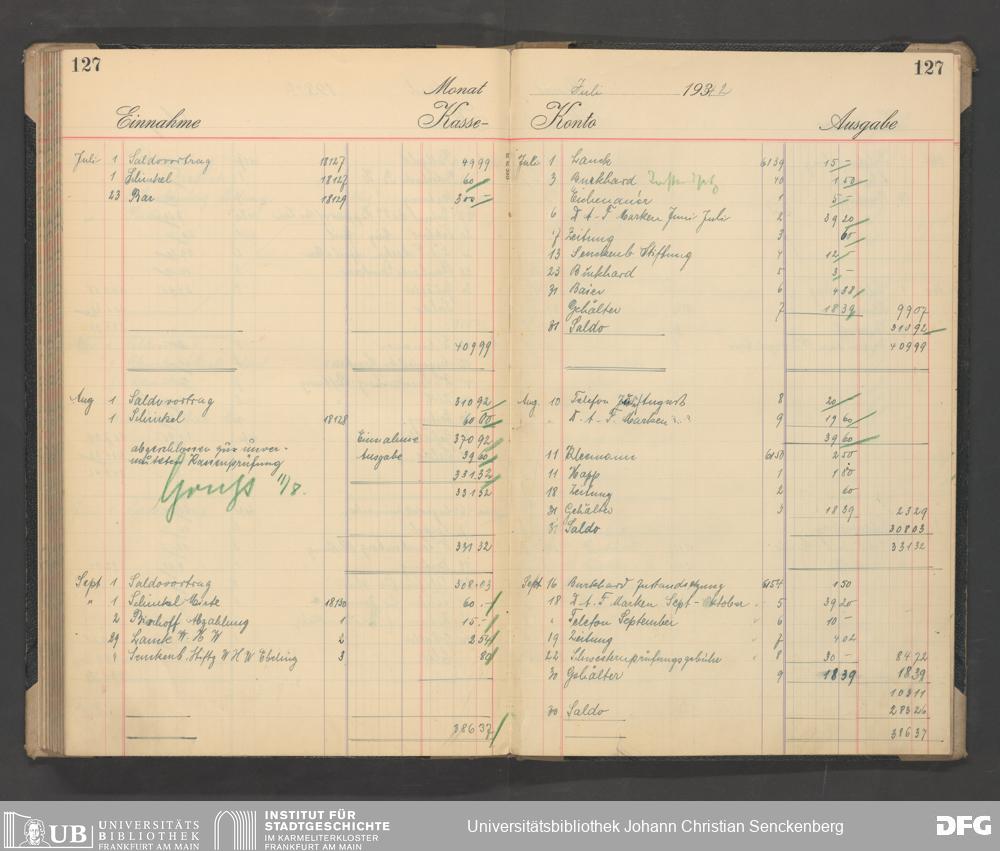 127
Monat
Einnahme Kasse-
Juli 1 Saldovortrag 18127 49 99
1 Schinkel 18127 60 -
23 Bar 18129 300 -
409 99
Aug 1 Saldovortrag 310 92
1 Schinkel 18128 60 00
Einnahme 370 92
abgeschlossen zur unver-
Ausgabe 39 60
muteten Kassenprüfung
331.32
11/8.
331 32
331 32
Sept 1 Saldovortrag 308.03
" 1 Schinkel Miete 18130 60.-
2 Abzahlung 1 15.-
29 Lanck W.H.W 2 2 54
" Senckenb. Stiftg W H W Ebeling 3 80
386 37
127
Juli 1942
Konto Ausgabe
Juli 1 Lanck 6139 15 -
3 Burkhard 40 1 50
Eichenauer 1 5 -
6 D.A.F. Marken Juni Juli 2 39 20
7 Zeitung 3 60
13 Senckenb Stiftung 4 12 -
23 Burkhard 5 3 -
31 Baier 6 4 38
Gehälter 7 18 39 99 07
31 Saldo 310 92
409 99
Aug. 10 Telefon August 8 20
D.A.F. Marken 9 19 60
39 60
11 Kleemann 6150 2 50
11 Happ 1 1 80
18 Zeitung 2 60
31 Gehälter 3 18 39 23 29
31 Saldo 308 03
331 32
Sept 16 Burkhard Instandsetzung 6154 1 50
18 D.A.F. Marken Sept - Oktober 5 39 20
" Telefon September 6 10 -
19 Zeitung 7 4 02
22 Schwesternprüfungsgebühr 8 30 - 84.72
30 Gehälter 9 18 39 18 39
103 11
30 Saldo 283 26
386 37
UB UNIVERSITÄTS
BIBLIOTHEK
FRANKFURT AM MAIN
INSTITUT FÜR
STADTGESCHICHTE
IM KARMELITERKLOSTER
FRANKFURT AM MAIN
Universitätsbibliothek Johann Christian Senckenberg
DFG